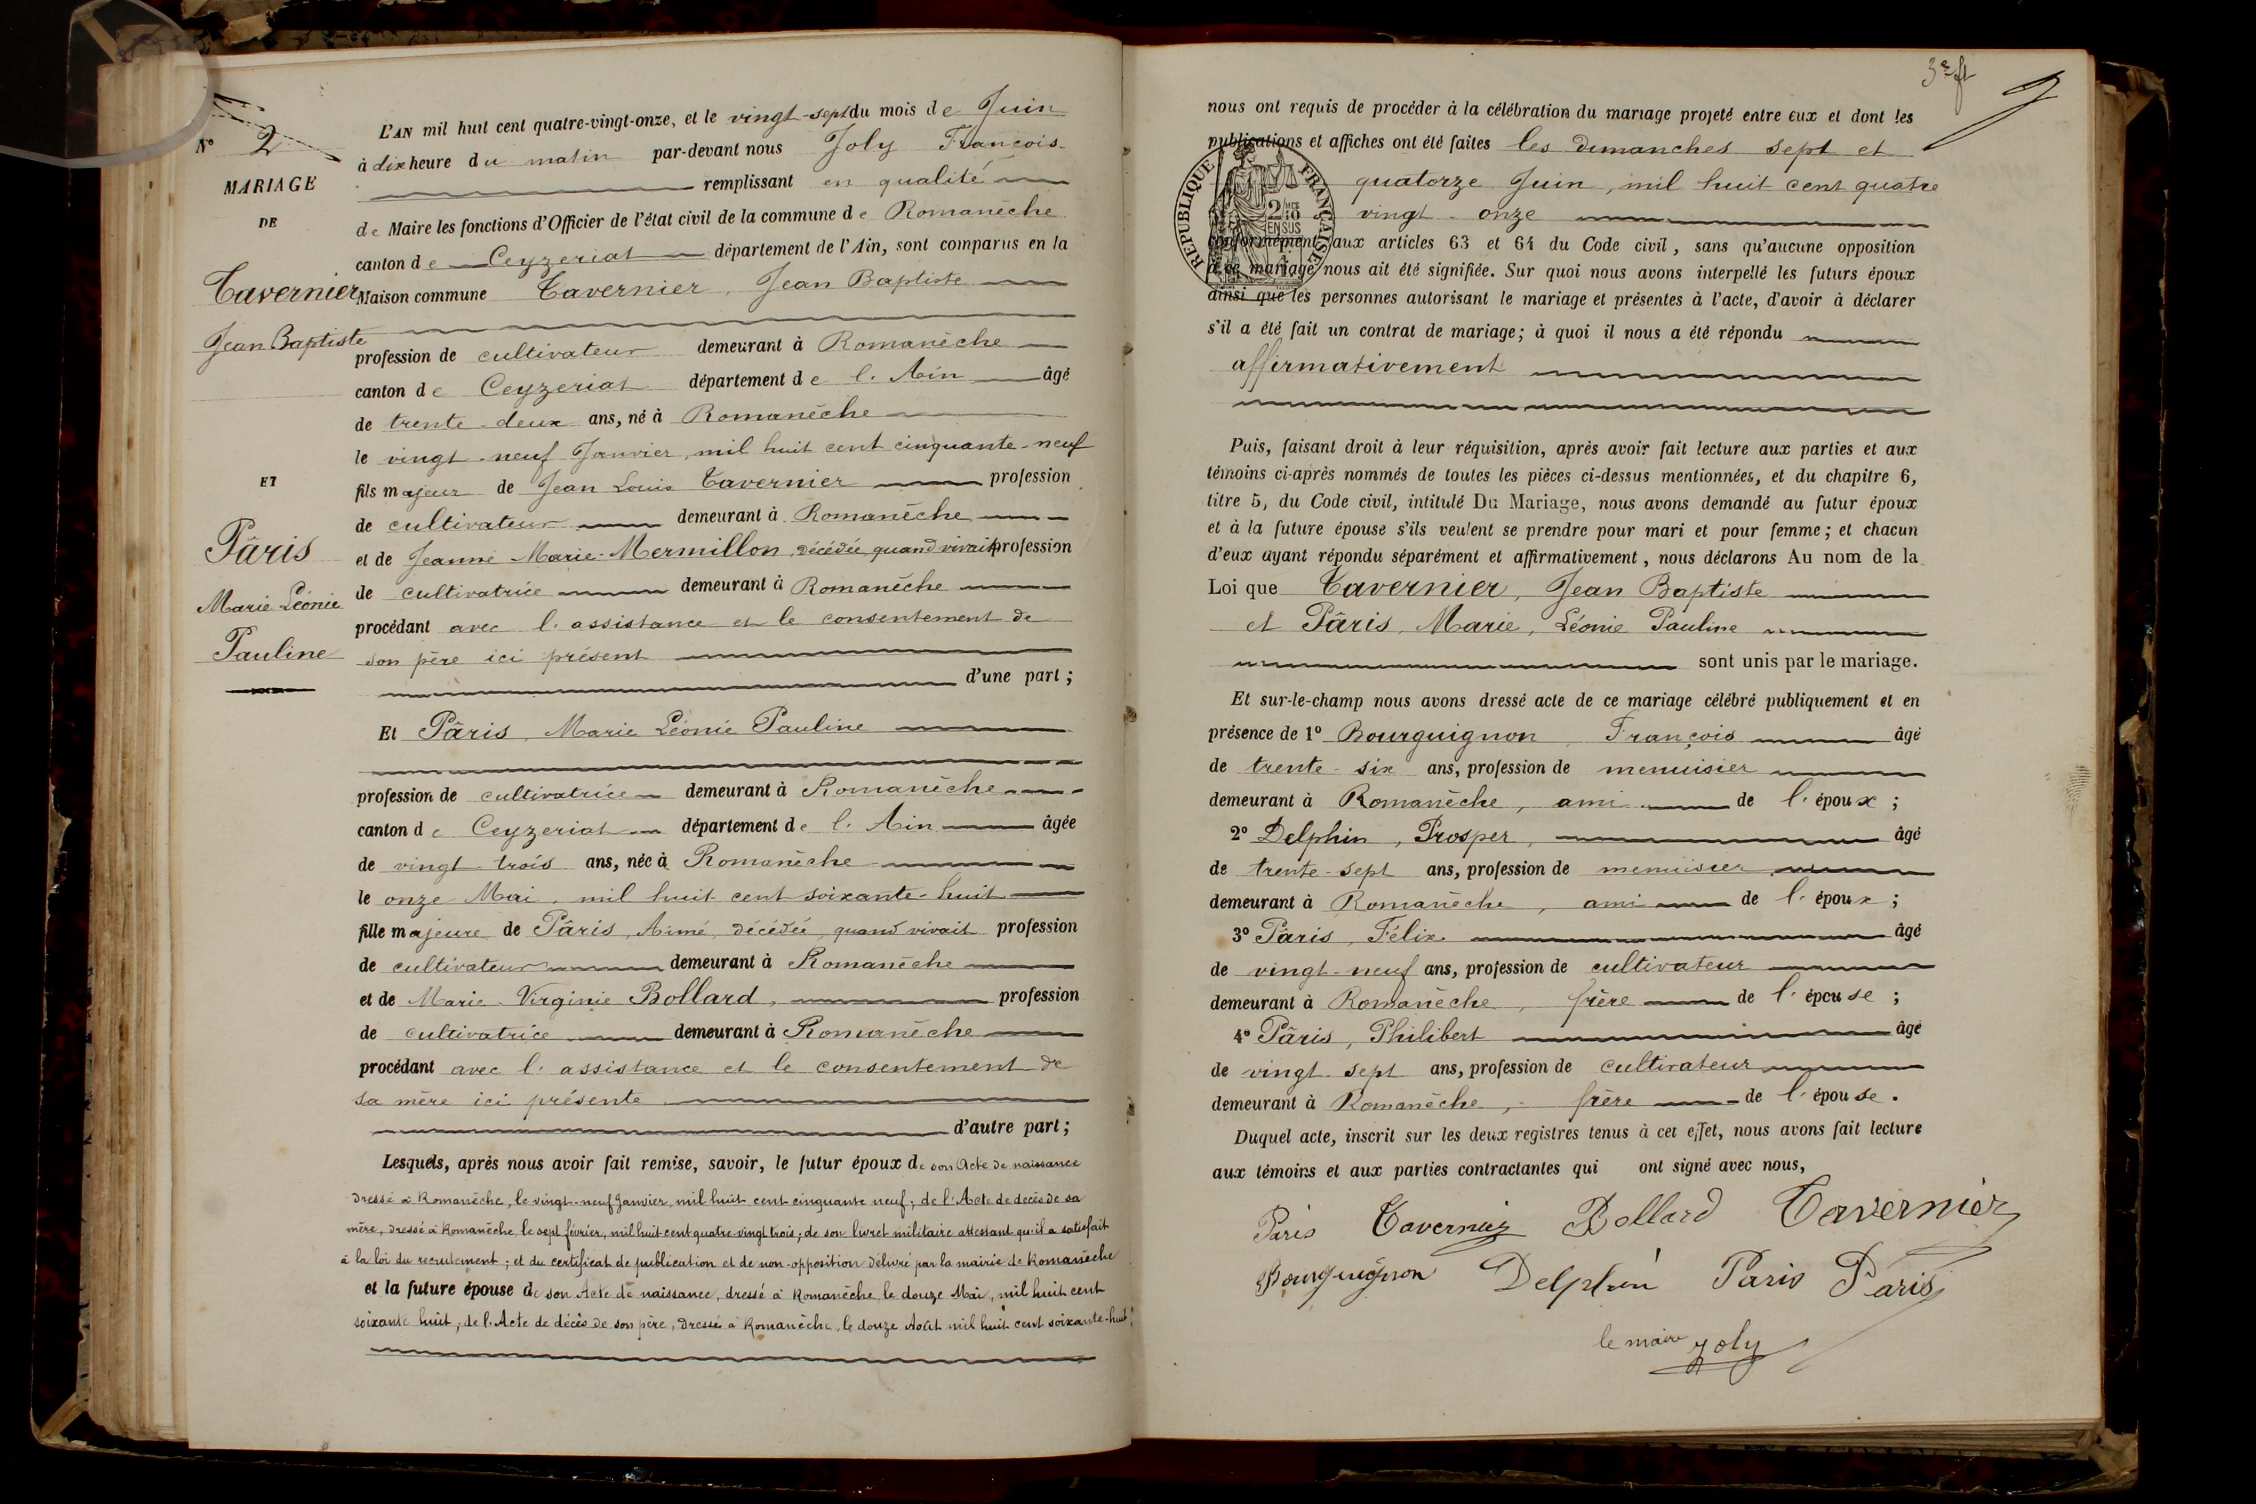 N° 2
MARIAGE
DE
Tavernier
Jean Baptiste
ET
Pâris
Marie Léonie
Pauline
L'AN mil huit cent quatre-vingt-onze, et le vingt-sept du mois de Juin
à dix heure du matin par-devant nous Joly François
remplissant en qualité
de Maire les fonctions d'Officier de l'état civil de la commune de Romanèche
canton de Ceyzeriat département de l'Ain, sont comparus en la
Maison commune Tavernier, Jean Baptiste
profession de cultivateur demeurant à Romanèche
canton de Ceyzeriat département de l'Ain âgé
de trente-deux ans, né à Romanèche
le vingt-neuf Janvier, mil huit cent cinquante-neuf
fils majeur de Jean Louis Tavernier profession
de cultivateur demeurant à Romanèche
et de Jeanne-Marie-Mermillon, décédée quand vivait profession
de cultivatrice demeurant à Romanèche
procédant avec l'assistance et le consentement de
son père ici présent
d'une part ;
Et Pâris, Marie Léonie Pauline
profession de cultivatrice demeurant à Romanèche
canton de Ceyzeriat département de l'Ain âgée
de vingt-trois ans, née à Romanèche
le onze Mai, mil huit cent soixante-huit
fille majeure de Pâris, Aimé, décédée, quand vivait profession
de cultivateur demeurant à Romanèche
et de Marie-Virginie Bollard, profession
de cultivatrice demeurant à Romanèche
procédant avec l'assistance et le consentement de
sa mère ici présente
d'autre part ;
Lesquels, après nous avoir fait remise, savoir, le futur époux de son Acte de naissance
dressé à Romanèche, le vingt-neuf Janvier, mil huit cent cinquante neuf ; de l'Acte de décès de sa
mère, dressé à Romanèche, le sept février, mil huit cent quatre-vingt trois ; de son livret militaire attestant qu'il a satisfait
à la loi du recrutement ; et du certificat de publication et de non-opposition délivré par la mairie de Romanèche
et la future épouse de son Acte de naissance, dressé à Romanèche, le douze Mai, mil huit cent
soixante huit ; de l'Acte de décès de son père, dressé à Romanèche, le douze Août mil huit cent soixante-huit ;
3e ft
nous ont requis de procéder à la célébration du mariage projeté entre eux et dont les
publications et affiches ont été faites les dimanches sept et
quatorze Juin, mil huit cent quatre
vingt-onze
REPUBLIQUE FRANÇAISE
2/10
EN SUS
conformément aux articles 63 et 64 du Code civil, sans qu'aucune opposition
à ce mariage nous ait été signifiée. Sur quoi nous avons interpellé les futurs époux
ainsi que les personnes autorisant le mariage et présentes à l'acte, d'avoir à déclarer
s'il a été fait un contrat de mariage; à quoi il nous a été répondu
affirmativement
Puis, faisant droit à leur réquisition, après avoir fait lecture aux parties et aux
témoins ci-après nommés de toutes les pièces ci-dessus mentionnées, et du chapitre 6,
titre 5, du Code civil, intitulé Du Mariage, nous avons demandé au futur époux
et à la future épouse s'ils veulent se prendre pour mari et pour femme ; et chacun
d'eux ayant répondu séparément et affirmativement, nous déclarons Au nom de la
Loi que Tavernier, Jean Baptiste
et Pâris, Marie, Léonie Pauline
sont unis par le mariage.
Et sur-le-champ nous avons dressé acte de ce mariage célébré publiquement et en
présence de 1° Bourguignon, François âgé
de trente-six ans, profession de menuisier
demeurant à Romanèche, ami de l'époux ;
2° Delphin, Prosper, âgé
de trente-sept ans, profession de menuisier
demeurant à Romanèche, ami de l'époux ;
3° Pâris, Félix âgé
de vingt-neuf ans, profession de cultivateur
demeurant à Romanèche, frère de l'épouse ;
4° Pâris, Philibert âgé
de vingt-sept ans, profession de cultivateur
demeurant à Romanèche, frère de l'épouse.
Duquel acte, inscrit sur les deux registres tenus à cet effet, nous avons fait lecture
aux témoins et aux parties contractantes qui ont signé avec nous,
Paris Tavernier Bollard Tavernier
Bourguignon Delphin Paris Paris
le maire Joly